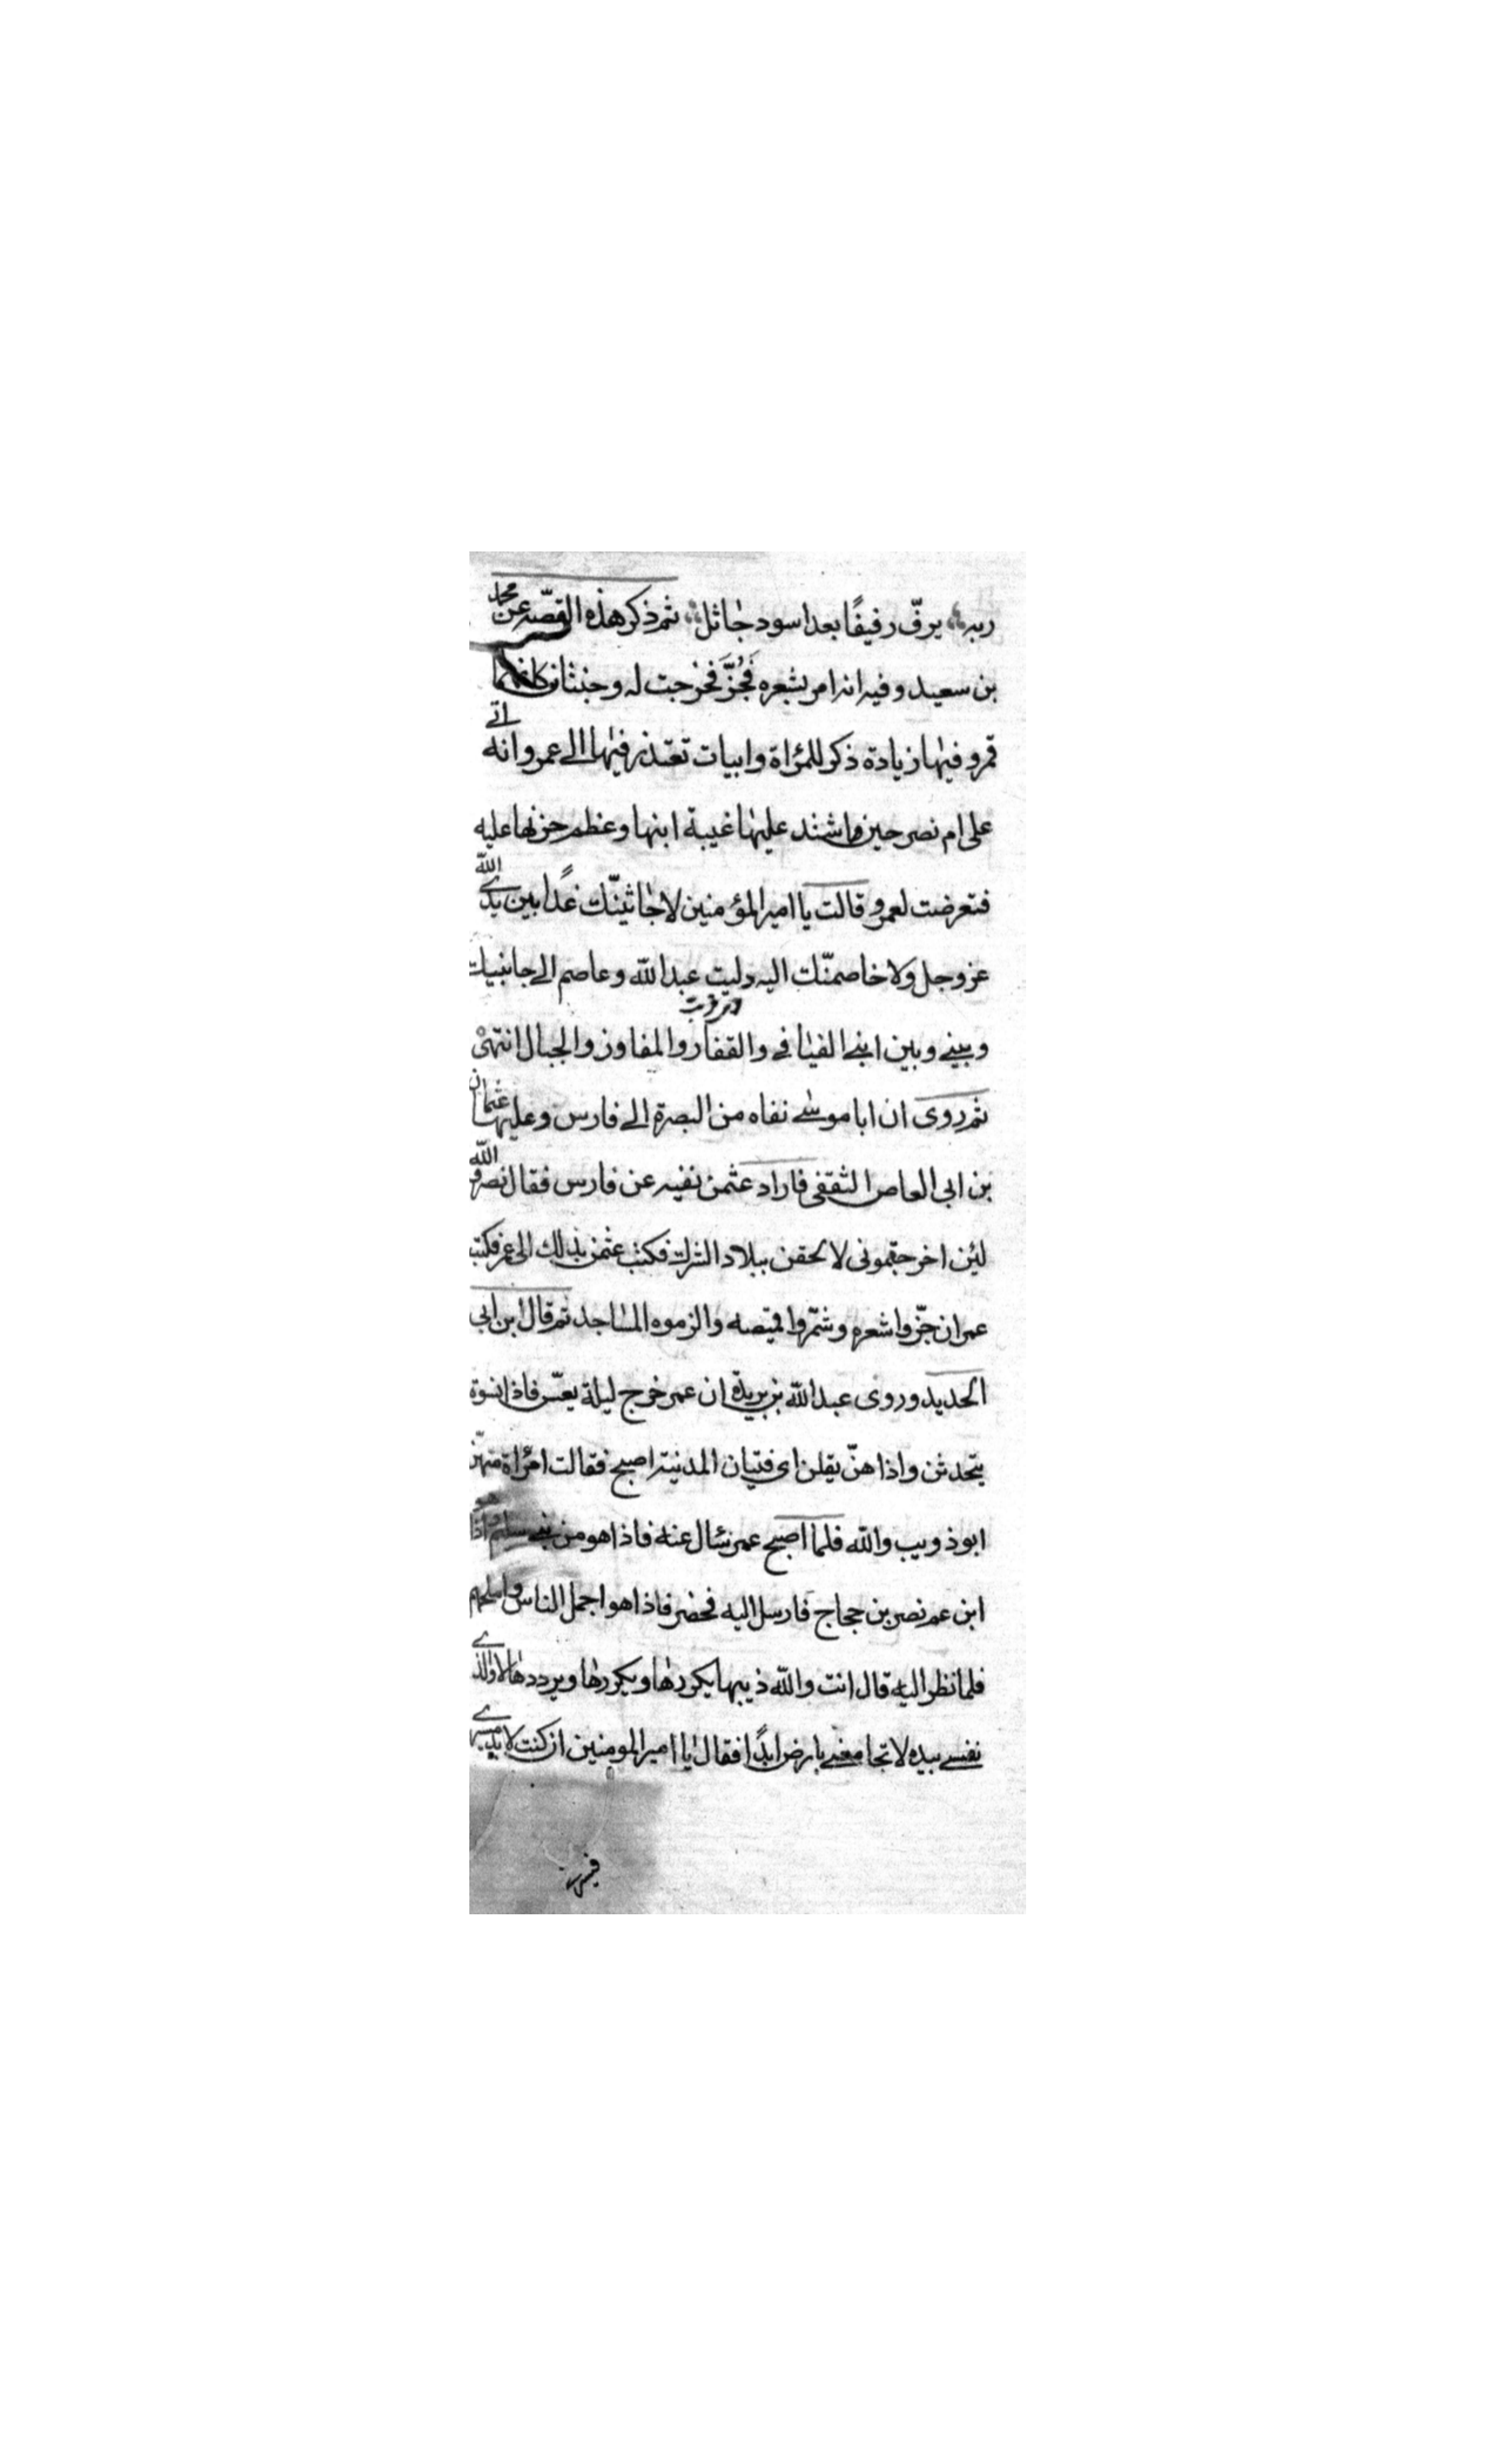 ربه يرفّ رفيفًا بعد اسود جاثل ثم ذكر هذه القصّة عن محمد
بن سعيد وفيه انه امر بشعره فَجُزَّ فخرجت له وجنتان كانهما
قمر وفيها زيادة ذكر للمرأة وابيات تعتذر فيها الى عمر وانه اتى
على ام نصر حين اشتد عليها غيبة ابنها وعظم حزنها عليه
فتعرضت لعمر وقالت يا امير المؤمنين لاجاثينّك غدًا بين يدى الله
عز وجل ولاخاصمنّك اليه يبيت عبد الله وعاصم الى جانبيك
وبينى وبين ابنى الفيافى والقفار والمفاوز والجبال انتهى
ثم روى ان ابا موسى نفاه من البصرة الى فارس وعليها عثمان
بن ابى العاص الثقفى فاراد عثمن نفيه عن فارس فقال نصر والله
لئن اخرجتمونى لالحقن ببلاد الشرك فكتب عثمن بذلك الى عمر فكتب
عمر ان جزّوا شعره وشمّروا قميصه والزموه المساجد ثم قال ابن ابى
الحديد وروى عبد الله بن بريدة ان عمر خرج ليلة يعسّ فاذا نسوة
يتحدثن واذا هنّ يقلن اى فتيان المدينة اصبح فقالت امرأة منهنّ
ابو ذويب والله فلما اصبح عمر سئال عنه فاذا هو من بنى سليم واذا هو
ابن عم نصر بن حجاج فارسل اليه فحضر فاذا هو اجمل الناس واملحهم
فلما نظر اليه قال انت والله ذيبها يكررها ويكررها ويرددها لا والذى
نفسى بيده لا تجامعنى بارض ابدًا فقال يا امير المومنين ان كنت لا بد مسيرى